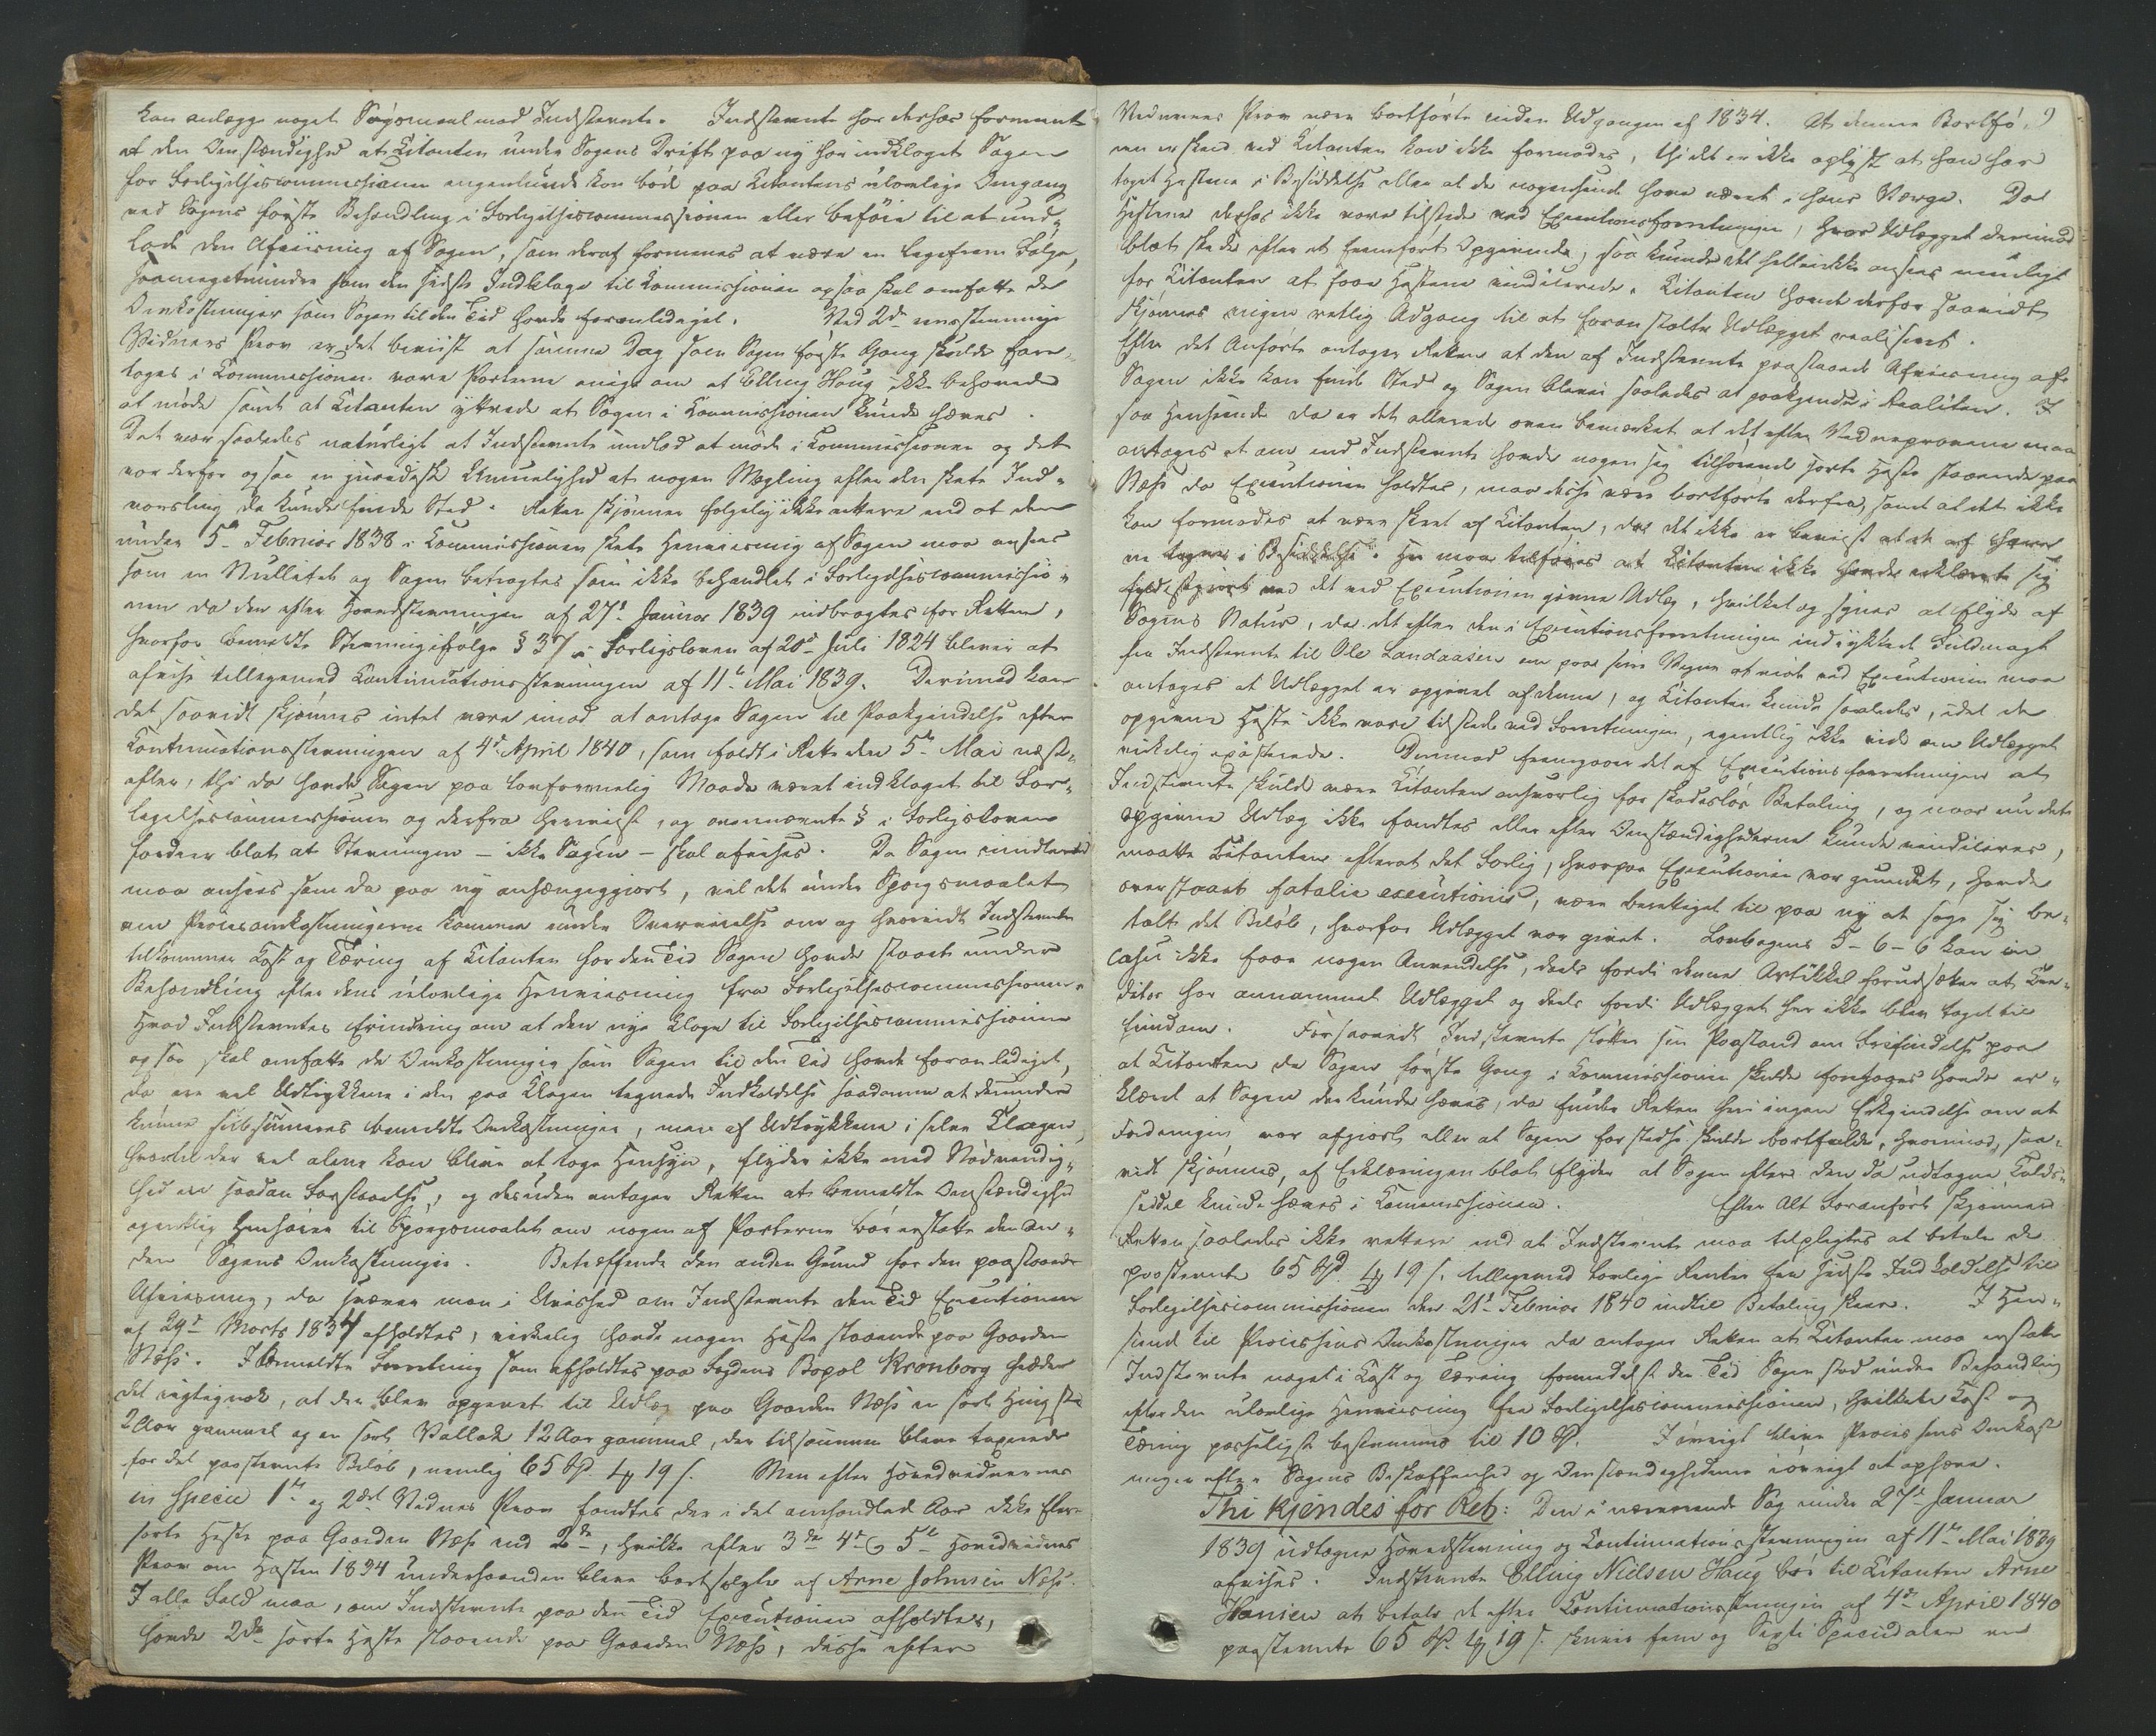 kan anlægge noget Søgsmaal mod Indstevnte. Indstevnte har derhos formeent
at den Omstændighed at Citanten under Sagens Drift paa ny har indklaget Sagen
for Forligelsescommissionen ingenlunde kan bøde paa Citantens ulovlige Omgang
ved Sagens første Behandling i Forligelsescommissionen eller beføie til at und-
lade den Afviisning af Sagen, som deraf formenes at være en ligefrem Følge,
saameget mindre som den sidste Indklage til Commissionen ogsaa skal omfatte de
Omkostninger som Sagen til den Tid havde foranlediget. Ved 2de eensstemmige
Vidners Prov er det beviist at samme Dag som Sagen første Gang skulde fore-
tages i Commissionen vare Parterne enige om at Elling Houg ikke behøvede
at møde samt at Citanten yttrede at Sagen i Commissionen kunde hæves.
Det var saaledes naturligt at Indstevnte undlod at møde i Commissionen og det
var derfor ogsaa en juridisk Umuelighed at nogen Mægling efter den skete Ind-
varsling da kunde finde Sted. Retten skjønner følgelig ikke rettere end at den
under 5te Februar 1838 i Commissionen skete Henviisning af Sagen maa ansees
som en Nullitet og Sagen betragtes som ikke behandlet i Forligelsescommissio-
nen da den efter Hovedstevningen af 27de Januar 1839 indbragtes for Retten,
hvorfor bemeldte Stevning ifølge § 37 i Forligsloven af 20de Juli 1824 bliver at
afvise tilligemed Continuationsstevningen af 11te Mai 1839. Derimod kan
det saavidt skjønnes intet være imod at antage Sagen til Paakjendelse efter
Continuationsstevningen af 4de April 1840, som faldt i Rette den 5te Mai næst-
efter, thi da havde Sagen paa lovformelig Maade været indklaget til For-
ligelsescommissionen og derfra henviist, og ovennævnte § i Forligsloven
fordrer blot at Stevningen – ikke Sagen – skal afvises. Da Sagen imidlertid
maa ansees som da paa ny anhængiggjort, vil det under Spørgsmaalet
om Procesomkostningerne komme under Overveielse om og hvorvidt Indstevnte
tilkommer Kost og Tæring af Citanten for den Tid Sagen havde staaet under
Behandling efter dens ulovlige Henviisning fra Forligelsescommissionen.
Hvad Indstevntes Erindring om at den nye Klage til Forligelsescommissionen
ogsaa skal omfatte de Omkostninger som Sagen til den Tid havde foranlediget,
da ere vel Udtrykkene i den paa Klagen tegnede Indkaldelse saadanne at derunder
kunne subsumeres bemeldte Omkostninger, men af Udtrykkene i selve Klagen,
hvortil der vel alene kan blive at tage Hensyn, flyder ikke med Nødvendig-
hed en saadan Forstaaelse, og desuden antager Retten at bemeldte Omstændighed
egentlig henhører til Spørgsmaalet om nogen af Parterne bør erstatte den an-
den Sagens Omkostninger. Betræffende den anden Grund for den paastaaede
Afviisning, da svæver man i Uvished om Indstevnte den Tid Executionen
af 29de Marts 1834 afholdtes, virkelig havde nogen Heste staaende paa Gaarden
Næss. I bemeldte Forretning som afholdtes paa Fogdens Bopæl Kronborg hedder
det rigtignok, at der blev opgivet til Udlæg paa Gaarden Næss en sort Hingst
2 Aar gammel og en sort Vallak 12 Aar gammel, der tilsammen bleve taxerede
for det paastevnte Beløb, nemlig 65 Spd. 4 ort 19 s. Men efter Hovedvidnernes
in specie 1ste og 2det Vidnes Prov fandtes der i det omhandlede Aar ikke flere
sorte Heste paa Gaarden Næss end 2de, hvilke efter 3de 4de & 5te Hovedvidnes
Prov om Høsten 1834 underhaanden bleve bortsolgte af Arne Johnsen Næss.
I alle Fald maa, om Indstevnte paa den Tid Executionen afholdtes,
havde 2de sorte Heste staaende paa Gaarden Næss, disse efter
9
Vidnernes Prov være bortførte inden Udgangen af 1834. At denne Bortfø-
ren er skeed ved Citanten kan ikke formodes, thi det er ikke oplyst at han har
taget Hestene i Besiddelse eller at de nogensinde have været i hans Værge. Da
Hestene derhos ikke vare tilstede ved Executionsforretningen, hvor Udlægget derimod
blot skede efter et fremført Opgivende, saa kunde det heller ikke ansees mueligt
for Citanten at faae Hestene vindicerede. Citanten havde derfor saavidt
skjønnes ingen retlig Adgang til at foranstalte Udlægget realiseret.
Efter det Anførte antager Retten at den af Indstevnte paastaaede Afviisning af
Sagen ikke kan finde Sted og Sagen bliver saaledes at paakjende i Realiteten. I
saa Henseende da er det allerede oven bemærket at det efter Vidneprovene maa
antages at om end Indstevnte havde nogen sig tilhørende sorte Heste staaende paa
Næss da Executionen holdtes, maa disse være bortførte derfra, samt at det ikke
kan formodes at være skeet af Citanten, da det ikke er beviist at de af ham
ere tagne i Besiddelse. Her maa tilføies at Citanten ikke havde erklæret sig
fyldestgjort med det ved Executionen givne Udlæg, hvilket og synes at flyde af
Sagens Natur, da det efter den i Executionsforretningen indrykkede Fuldmagt
fra Indstevnte til Ole Landaasen om paa sine Vegne at møde ved Executionen maa
antages at Udlægget er opgivet af denne, og Citanten kunde saaledes, idet de
opgivne Heste ikke vare tilstede ved Forretningen, egentlig ikke vide om Udlægget
virkelig existerede. Derimod fremgaaer det af Executionsforretningen at
Indstevnte skulde være Citanten ansvarlig for skadesløs Betaling, og naar nu det
opgivne Udlæg ikke fandtes eller efter Omstændighederne kunde vindiceres,
maatte Citanten efterat det Forlig, hvorpaa Executionen var grundet, havde
overstaaet fatalia executionis, være berettiget til paa ny at søge sig be-
talt det Beløb, hvorfor Udlægget var givet. Lovbogens 5-6-6 kan in
casu ikke faae nogen Anvendelse, deels fordi denne Artikkel forudsætter at Cre-
ditor har annammet Udlægget og deels fordi Udlægget her ikke blev taget til
Eiendom. Forsaavidt Indstevnte støtter sin Paastand om Frifindelse paa
at Citanten da Sagen første Gang i Commissionen skulde foretages havde er-
klæret at Sagen der kunde hæves, da finder Retten heri ingen Erkjendelse om at
Fordringen var afgjort eller at Sagen for stedse skulde bortfalde, hvorimod, saa-
vidt skjønnes, af Erklæringen blot flyder at Sagen efter den da udtagne Kalds-
seddel kunde hæves i Commissionen. Efter Alt Foranført skjønner
Retten saaledes ikke rettere end at Indstevnte maa tilpligtes at betale de
paastevnte 65 Spd. 4 ort 19 s. tilligemed lovlige Renter fra sidste Indkaldelse til
Forligelsescommissionen den 21de Februar 1840 indtil Betaling skeer. I Hen-
seende til Processens Omkostninger da antager Retten at Citanten maa erstatte
Indstevnte noget i Kost og Tæring formedelst den Tid Sagen stod under Behandling
efter den ulovlige Henviisning fra Forligelsescommissionen, hvilken Kost og
Tæring passeligst bestemmes til 10 Spd. Iøvrigt blive Processens Omkost-
ninger efter Sagens Beskaffenhed og Omstændighederne iøvrigt at ophæve.
Thi kjendes for Ret: Den i nærværende Sag under 27de Januar
1839 udtagne Hovedstevning og Continuationsstevningen af 11te Mai 1839
afvises. Indstevnte Elling Nielsen Haug bør til Citanten Arne
Hansen at betale de efter Continuationsstevningen af 4de April 1840
paastevnte 65 Spd. 4 ort 19 s. skriver fem og Sexti Speciedaler een